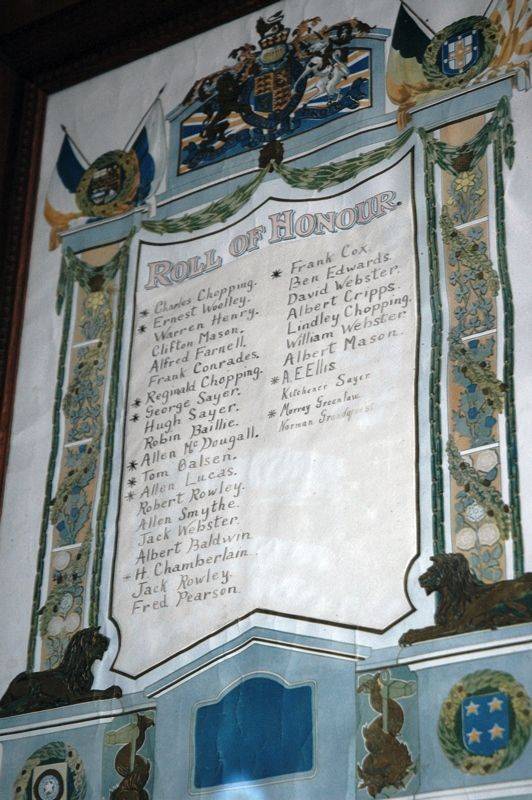 ROLL OF HONOUR.
* Charles Chopping.
Ernest Woolley.
* Warren Henry.
Clifton Mason.
Alfred Farnell.
Frank Conrades.
Reginald Chopping.
* George Sayer.
* Hugh Sayer.
Robin Baillie.
Allen McDougall.
* Tom Balsen.
* Allen Lucas.
* Robert Rowley.
Allen Smythe.
Jack Webster.
Albert Baldwin
H. Chamberlain.
* Jack Rowley.
Fred Pearson.
* Frank Cox.
Ben Edwards.
David Webster.
Albert Cripps.
Lindley Chopping.
William Webster.
Albert Mason.
* A.E Ellis.
Kitchener Sayer
* Murray Greenlaw
Norman